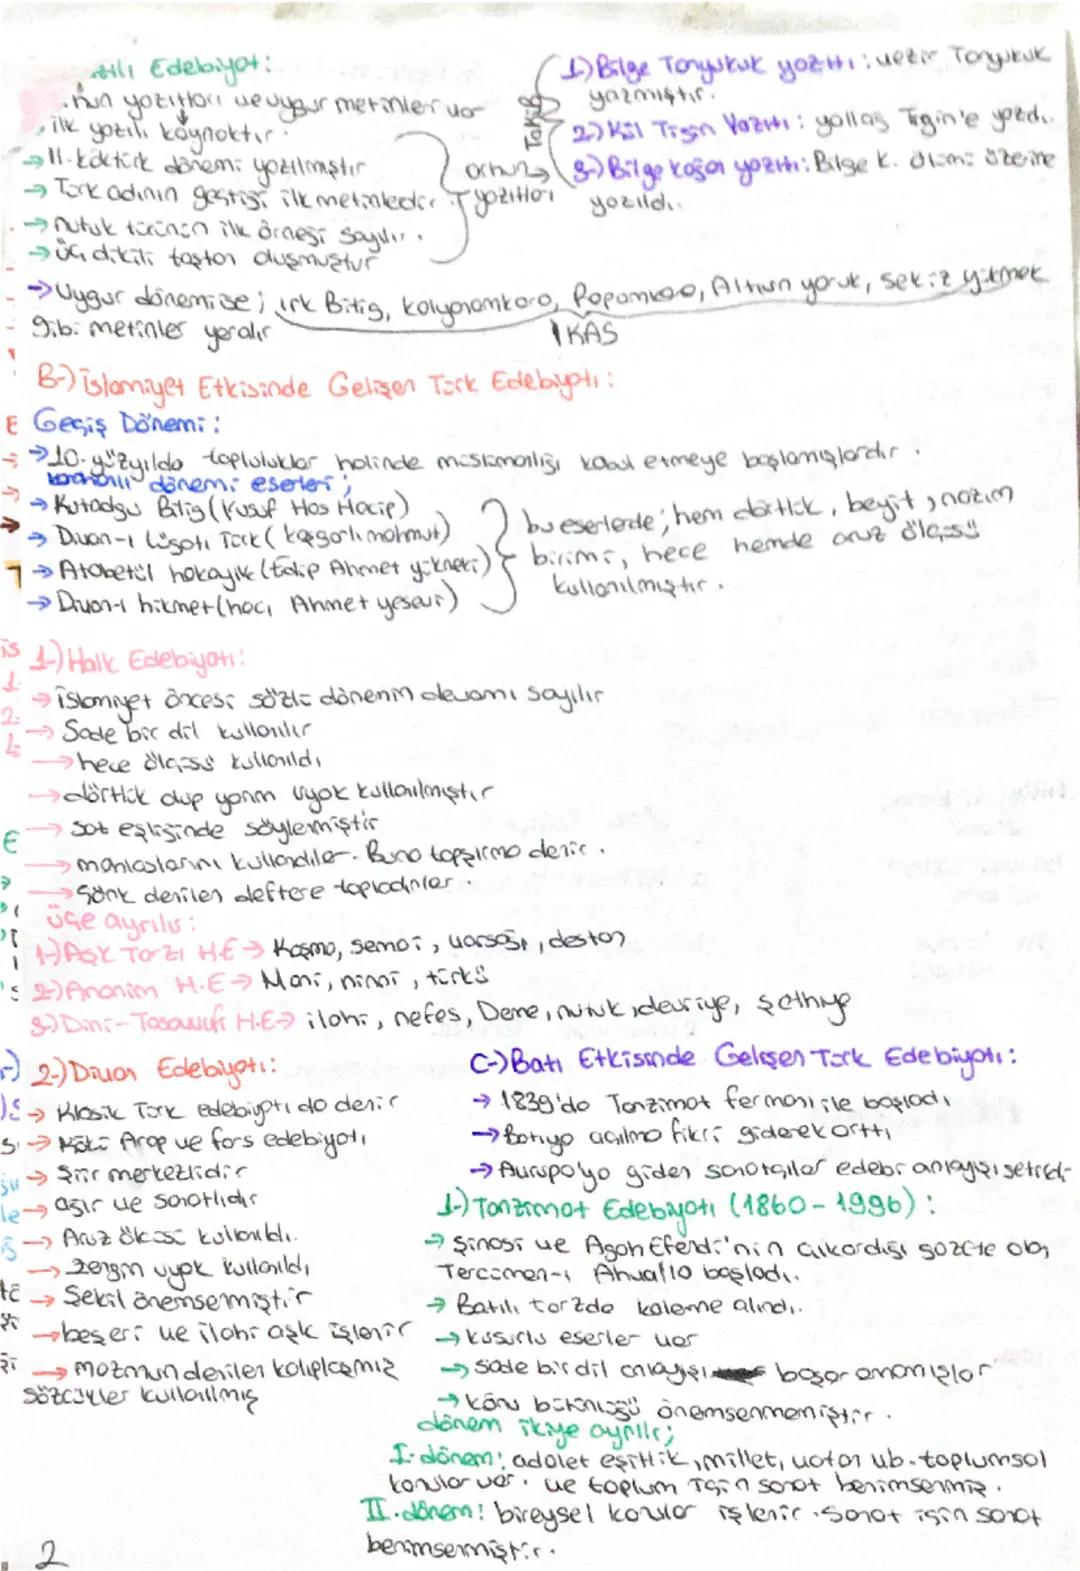 Edebiyat:
yazıtları ve uygur metinleri var
ilk yazılı kaynaktır.
→ II. köktürk dönemi yazılmıştır
→ Türk adının geçtiği ilk metinlerdir.
→ nutuk türünün ilk örneği sayılır.
→ üç dikili taştan oluşmuştur
orhun yazıtları
1-) Bilge Tonyukuk yazıtı: vezir Tonyukuk
yazmıştır.
2-) Kül Tigin Yazıtı: yollug Tigin'e yazdı.
3-) Bilge kağan yazıtı: Bilge K. ölümü üzerine
yazıldı.
→ Uygur dönemi ise; ırk Bitig, kalyanamkara, Papamkara, Altun yaruk, sekiz yükmek
gibi metinler yeralır
IKAS
B-) islamiyet Etkisinde Gelişen Türk Edebiyatı:
Geçiş Dönemi:
→ 10. yüzyılda topluluklar halinde müslümanlığı kabul etmeye başlamışlardır.
dönemi eserleri;
→ Kutadgu Bilig (Yusuf Has Hacip)
→ Divan-ı lügatı Türk (kaşgarlı mahmut)
→ Atabetül hakayık (Edip Ahmet yükneki)
→ Divan-ı hikmet (hacı Ahmet yesevi)
bu eserlerde; hem dörtlük, beyit, nazım
birimi, hece hemde aruz ölçüsü
kullanılmıştır.
1-) Halk Edebiyatı:
→ islamiyet öncesi sözlü dönemin devamı sayılır
→ Sade bir dil kullanılır
→ hece ölçüsü kullanıldı
→ dörtlük olup yarım uyak kullanılmıştır
→ saz eşliğinde söylemiştir
→ mahlaslarını kullandılar. Buna tapşırma denir.
→ Cönk denilen deftere topladılar.
üçe ayrılır:
1-) Aşk Tarzı H.E → Koşma, semai, varsağı, destan
2-) Anonim H.E → Mani, ninni, türkü
3-) Dini-Tasavvufi H.E → ilahi, nefes, Deme, nutuk, devriye, şathiye
2-) Divan Edebiyatı:
→ Klasik Türk edebiyatı da denir
→ Kökü Arap ve fars edebiyatı
→ Şiir merkezlidir
→ ağır ve sanatlıdır
→ Aruz ölçüsü kullanıldı.
→ zengin uyak kullanıldı
→ Şekil önemsenmiştir
→ beşeri ve ilahi aşk işlenir
→ mazmun denilen kalıplaşmış
sözcükler kullanılmış
C-) Batı Etkisinde Gelişen Türk Edebiyatı:
→ 1839'da Tanzimat fermanı ile başladı
→ Batıya açılma fikri giderek arttı
→ Avrupa'ya giden sanatçılar edebi anlayışı getirdi
1-) Tanzimat Edebiyatı (1860-1996):
→ Şinasi ve Agah Efendi'nin çıkardığı gazete olan
Tercüman-ı Ahval'la başladı.
→ Batılı tarzda kaleme alındı.
→ kusurlu eserler var
→ sade bir dil anlayışı başaramamışlar
→ konu bütünlüğü önemsenmemiştir.
dönem ikiye ayrılır;
I. dönem: adalet eşitlik, millet, vatan vb. toplumsal
konular var. ve toplum için sanat benimsenmiş.
II. dönem: bireysel konular işlenir. Sanat için sanat
benimsenmiştir.
2